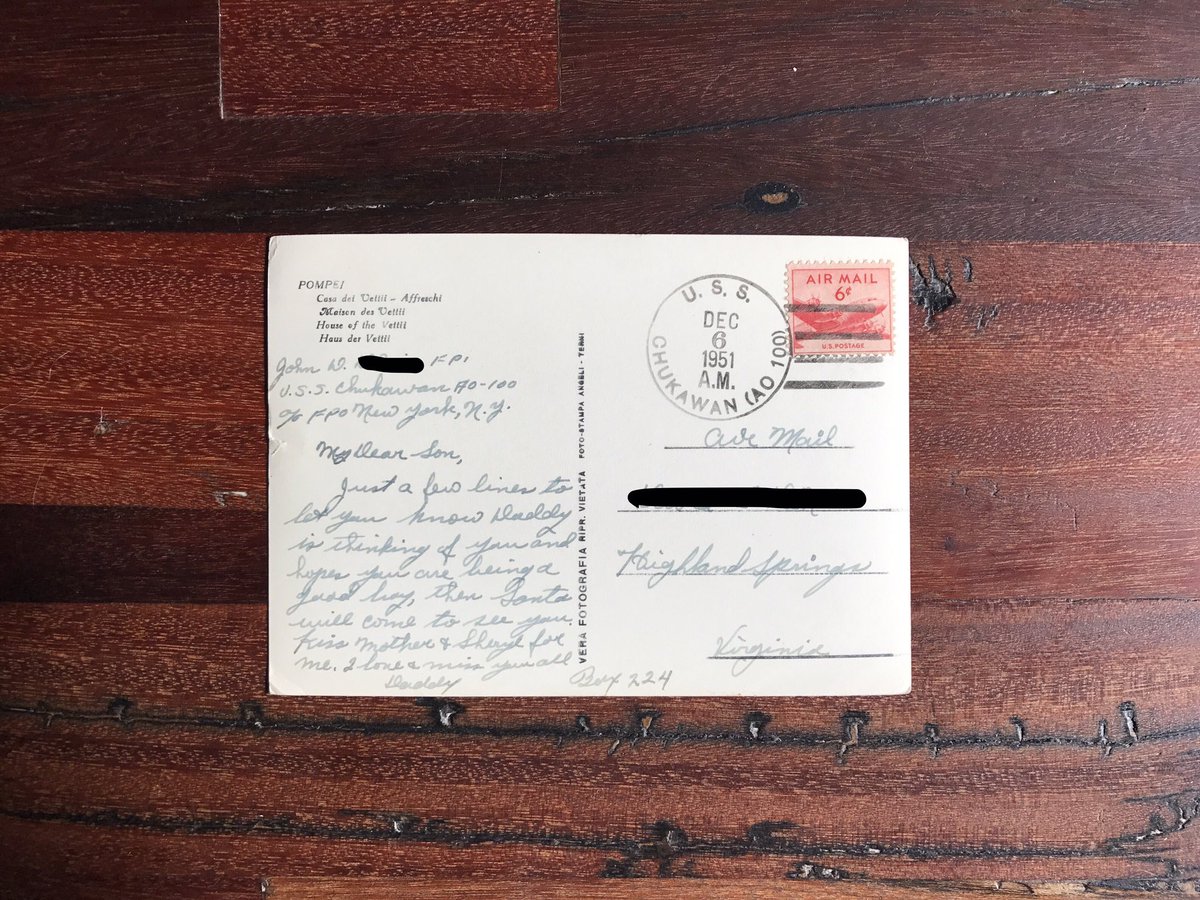 POMPEI
Casa dei Vettii - Affreschi
Maison des Vettii
House of the Vettii
Haus der Vettii
John D. FP1
U.S.S. Chukawan AO-100
c/o FPO New York, N.Y.
My Dear Son,
Just a few lines to
let you know Daddy
is thinking of you and
hopes you are being a
good boy, then Santa
will come to see you.
Kiss Mother & Sheryl for
me. I love & miss you all
Daddy
VERA FOTOGRAFIA RIPR. VIETATA FOTO-STAMPA ANGELI - TERNI
U. S. S.
DEC
6
1951
A.M.
CHUKAWAN (AO 100)
AIR MAIL
6¢
U.S. POSTAGE
Air Mail
Highland Springs
Virginia
Box 224